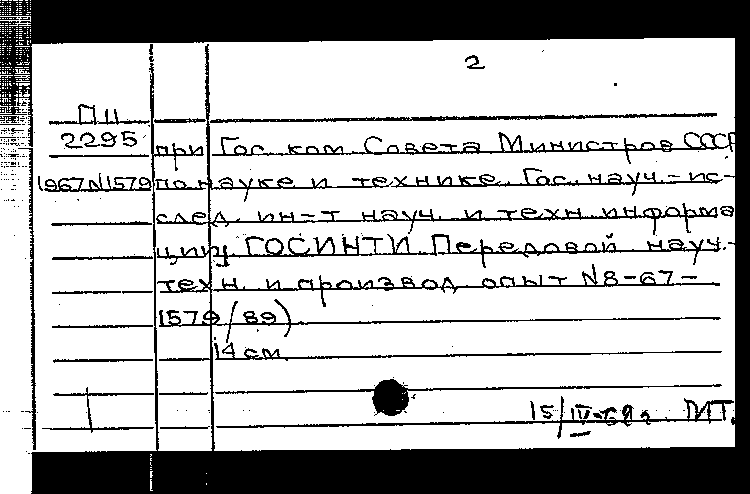 2
П 11
2295 при Гос. ком. Совета Министров СССР
1967 N1579 по науке и технике. Гос. науч.-ис-
след. ин-т науч. и техн. информа
ции ГОСИНТИ. Передовой науч.-
техн. и производ. опыт N8-67-
1579/89)
14 см.
15/IV-68 г. ПИТ.